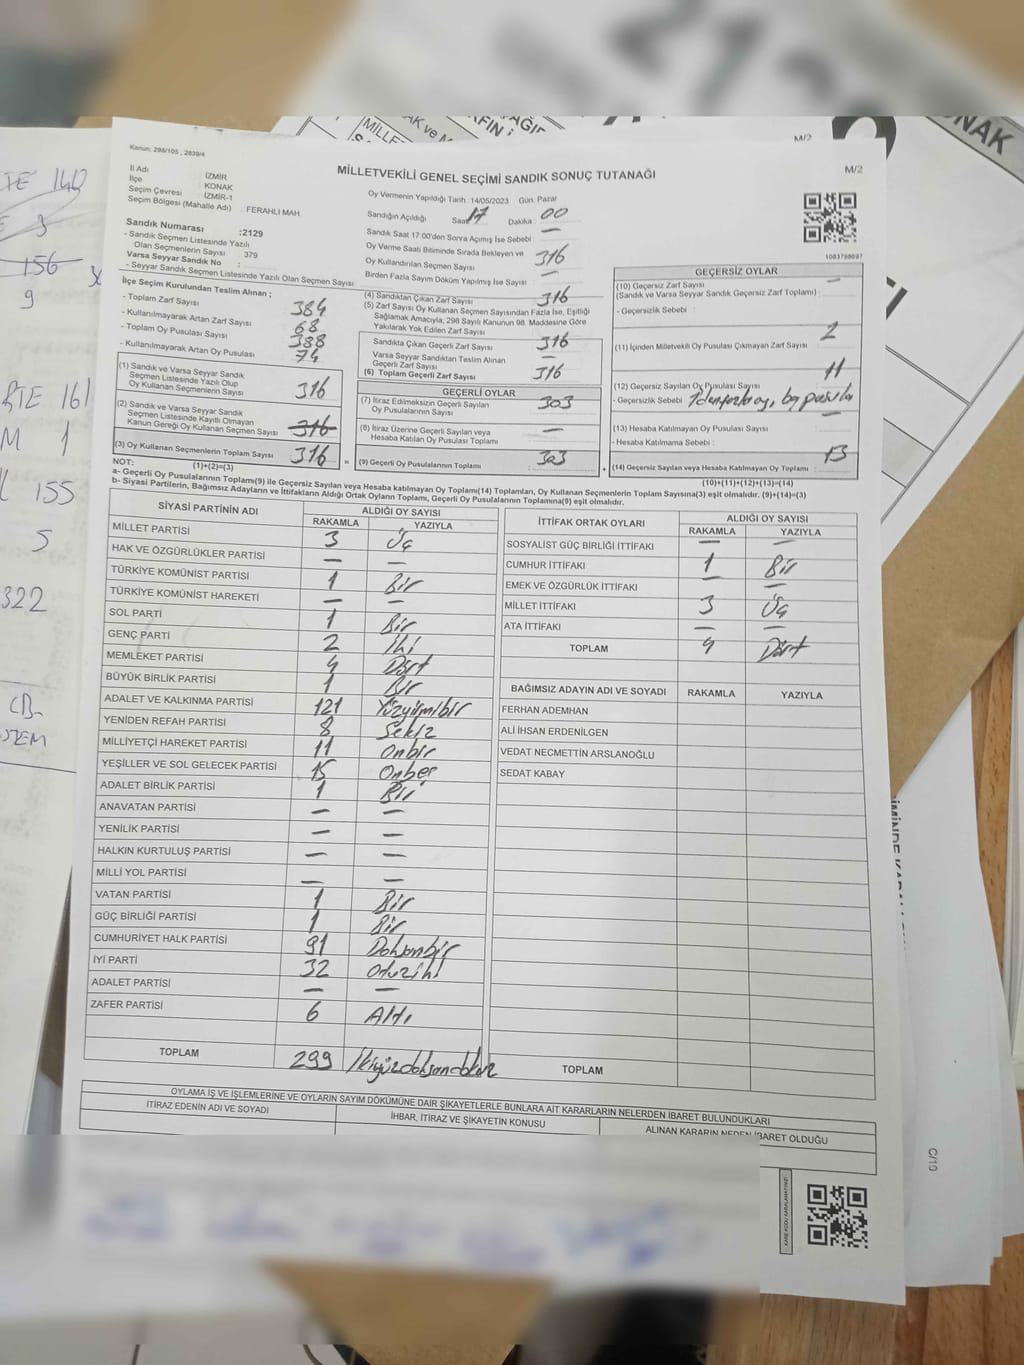 Kanun: 298/105 , 2839/4
M/2
MİLLETVEKİLİ GENEL SEÇİMİ SANDIK SONUÇ TUTANAĞI
M/2
İl Adı İZMİR
İlçe KONAK
Seçim Çevresi İZMİR-1
Seçim Bölgesi (Mahalle Adı) : FERAHLI MAH.
Oy Vermenin Yapıldığı Tarih 14/05/2023 Gün: Pazar
Sandığın Açıldığı Saat 17 Dakika : 00
1083798697
Sandık Numarası :2129
- Sandık Seçmen Listesinde Yazılı
Olan Seçmenlerin Sayısı : 379
Varsa Seyyar Sandık No :
- Seyyar Sandık Seçmen Listesinde Yazılı Olan Seçmen Sayısı
Sandık Saat 17:00'den Sonra Açımış İse Sebebi : —
Oy Verme Saati Bitiminde Sırada Bekleyen ve
Oy Kullandırılan Seçmen Sayısı 316
Birden Fazla Sayım Döküm Yapılmış İse Sayısı —
İlçe Seçim Kurulundan Teslim Alınan ;
- Toplam Zarf Sayısı 384
- Kullanılmayarak Artan Zarf Sayısı 68
- Toplam Oy Pusulası Sayısı 388
- Kullanılmayarak Artan Oy Pusulası 74
(1) Sandık ve Varsa Seyyar Sandık
Seçmen Listesinde Yazılı Olup
Oy Kullanan Seçmenlerin Sayısı 316
(2) Sandık ve Varsa Seyyar Sandık
Seçmen Listesinde Kayıtlı Olmayan
Kanun Gereği Oy Kullanan Seçmen Sayısı 316
(3) Oy Kullanan Seçmenlerin Toplam Sayısı 316
(1)+(2)=(3)
(4) Sandıktan Çıkan Zarf Sayısı 316
(5) Zarf Sayısı Oy Kullanan Seçmen Sayısından Fazla İse, Eşitliği
Sağlamak Amacıyla, 298 Sayılı Kanunun 98. Maddesine Göre
Yakılarak Yok Edilen Zarf Sayısı
Sandıkta Çıkan Geçerli Zarf Sayısı 316
Varsa Seyyar Sandıktan Teslim Alınan
Geçerli Zarf Sayısı —
(6) Toplam Geçerli Zarf Sayısı 316
GEÇERLİ OYLAR
(7) İtiraz Edilmeksizin Geçerli Sayılan
Oy Pusulalarının Sayısı 303
(8) İtiraz Üzerine Geçerli Sayılan veya
Hesaba Katılan Oy Pusulası Toplamı —
= (9) Geçerli Oy Pusulalarının Toplamı : 303
GEÇERSİZ OYLAR
(10) Geçersiz Zarf Sayısı —
(Sandık ve Varsa Seyyar Sandık Geçersiz Zarf Toplamı) :
- Geçersizlik Sebebi :
(11) İçinden Milletvekili Oy Pusulası Çıkmayan Zarf Sayısı 2
(12) Geçersiz Sayılan Oy Pusulası Sayısı 11
- Geçersizlik Sebebi
(13) Hesaba Katılmayan Oy Pusulası Sayısı —
- Hesaba Katılmama Sebebi :
+ (14) Geçersiz Sayılan veya Hesaba Katılmayan Oy Toplamı 13
(10)+(11)+(12)+(13)=(14)
NOT:
a- Geçerli Oy Pusulalarının Toplamı(9) ile Geçersiz Sayılan veya Hesaba katılmayan Oy Toplamı(14) Toplamları, Oy Kullanan Seçmenlerin Toplam Sayısına(3) eşit olmalıdır. (9)+(14)=(3)
b- Siyasi Partilerin, Bağımsız Adayların ve İttifakların Aldığı Ortak Oyların Toplamı, Geçerli Oy Pusulalarının Toplamına(9) eşit olmalıdır.
SİYASİ PARTİNİN ADI ALDIĞI OY SAYISI
RAKAMLA YAZIYLA
MİLLET PARTİSİ 3 Üç
HAK VE ÖZGÜRLÜKLER PARTİSİ — —
TÜRKİYE KOMÜNİST PARTİSİ 1 Bir
TÜRKİYE KOMÜNİST HAREKETİ — —
SOL PARTİ 1 Bir
GENÇ PARTİ 2 İki
MEMLEKET PARTİSİ 4 Dört
BÜYÜK BİRLİK PARTİSİ 1 Bir
ADALET VE KALKINMA PARTİSİ 121 Yüzyirmibir
YENİDEN REFAH PARTİSİ 8 Sekiz
MİLLİYETÇİ HAREKET PARTİSİ 11 Onbir
YEŞİLLER VE SOL GELECEK PARTİSİ 15 Onbeş
ADALET BİRLİK PARTİSİ 1 Bir
ANAVATAN PARTİSİ — —
YENİLİK PARTİSİ — —
HALKIN KURTULUŞ PARTİSİ — —
MİLLİ YOL PARTİSİ — —
VATAN PARTİSİ 1 Bir
GÜÇ BİRLİĞİ PARTİSİ 1 Bir
CUMHURİYET HALK PARTİSİ 91 Doksanbir
İYİ PARTİ 32 Otuziki
ADALET PARTİSİ — —
ZAFER PARTİSİ 6 Altı
TOPLAM 299 İkiyüzdoksandokuz
İTTİFAK ORTAK OYLARI ALDIĞI OY SAYISI
RAKAMLA YAZIYLA
SOSYALİST GÜÇ BİRLİĞİ İTTİFAKI — —
CUMHUR İTTİFAKI 1 Bir
EMEK VE ÖZGÜRLÜK İTTİFAKI — —
MİLLET İTTİFAKI 3 Üç
ATA İTTİFAKI — —
TOPLAM 4 Dört
BAĞIMSIZ ADAYIN ADI VE SOYADI RAKAMLA YAZIYLA
FERHAN ADEMHAN
ALİ İHSAN ERDENİLGEN
VEDAT NECMETTİN ARSLANOĞLU
SEDAT KABAY
TOPLAM
OYLAMA İŞ VE İŞLEMLERİNE VE OYLARIN SAYIM DÖKÜMÜNE DAİR ŞİKAYETLERLE BUNLARA AİT KARARLARIN NELERDEN İBARET BULUNDUKLARI
İTİRAZ EDENİN ADI VE SOYADI
İHBAR, İTİRAZ VE ŞİKAYETİN KONUSU
ALINAN KARARIN NEDEN İBARET OLDUĞU
C/10
KONAK
156
9
RTE 161
M 1
155
5
322
CB